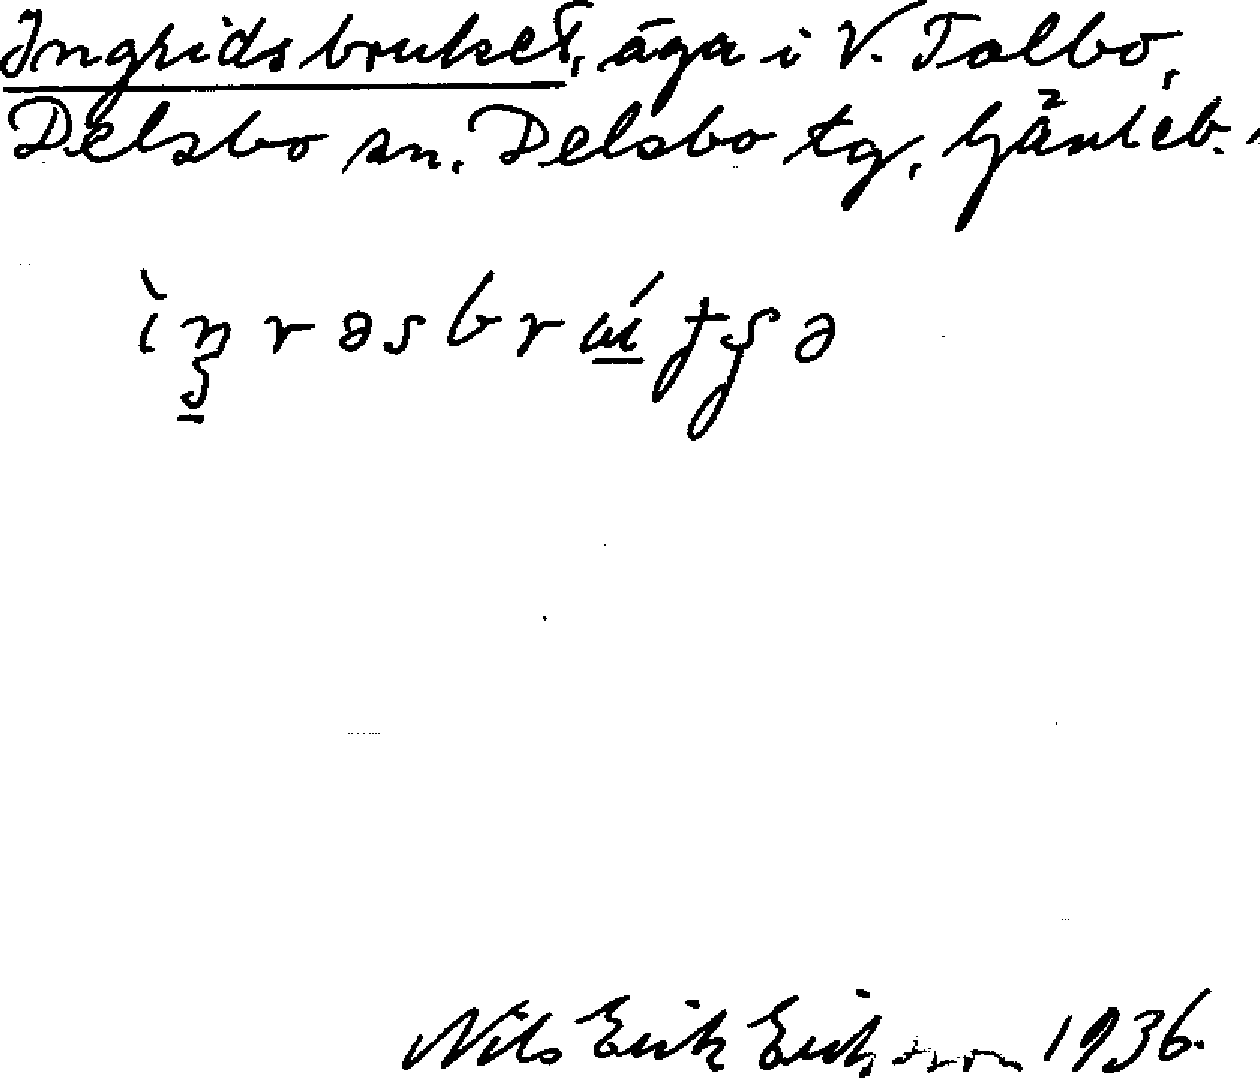 Ingridsbruket, äga i V. Tolbo,
Delsbo sn. Delsbo tg. Gävleb.
Nils Erik Eriksson 1936.